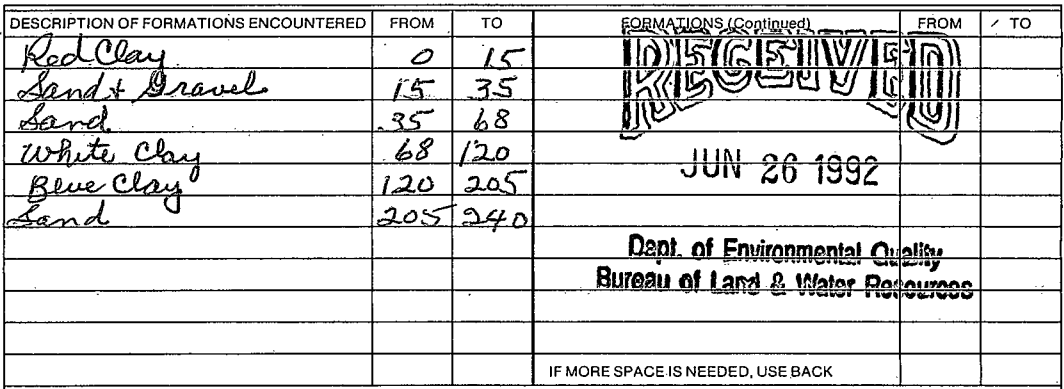 DESCRIPTION OF FORMATIONS ENCOUNTERED FROM TO FORMATIONS (Continued) FROM TO
Red Clay 0 15
Sand & Gravel 15 35
Sand 35 68
White Clay 68 120
Blue Clay 120 205
Sand 205 240
RECEIVED
JUN 26 1992
Dept. of Environmental Quality
Bureau of Land & Water Resources
IF MORE SPACE IS NEEDED, USE BACK